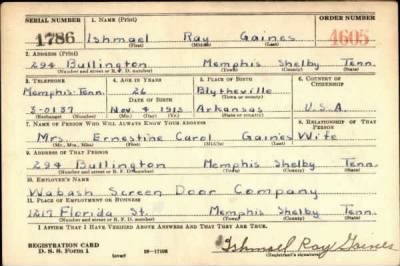 SERIAL NUMBER 1. NAME (Print) ORDER NUMBER
1786 Ishmael Ray Gaines 4605
(First) (Middle) (Last)
2. ADDRESS (Print)
294 Bullington Memphis Shelby Tenn.
(Number and street or R. F. D. number) (Town) (County) (State)
3. TELEPHONE 4. AGE IN YEARS 5. PLACE OF BIRTH 6. COUNTRY OF CITIZENSHIP
Memphis-Tenn. 26 Blytheville
DATE OF BIRTH (Town) (County)
3-0137 Nov. 4 1913 Arkansas U.S.A.
(Exchange) (Number) (Mo.) (Day) (Yr.) (State or country)
7. NAME OF PERSON WHO WILL ALWAYS KNOW YOUR ADDRESS 8. RELATIONSHIP OF THAT PERSON
Mrs. Ernestine Carol Gaines Wife
(Mr., Mrs., Miss) (First) (Middle) (Last)
9. ADDRESS OF THAT PERSON
294 Bullington Memphis Shelby Tenn.
(Number and street or R. F. D. number) (Town) (County) (State)
10. EMPLOYER'S NAME
Wabash Screen Door Company
11. PLACE OF EMPLOYMENT OR BUSINESS
1217 Florida St. Memphis Shelby Tenn.
(Number and street or R. F. D. number) (Town) (County) (State)
I AFFIRM THAT I HAVE VERIFIED ABOVE ANSWERS AND THAT THEY ARE TRUE.
REGISTRATION CARD
D. S. S. Form 1 (over) Ishmael Ray Gaines
(Registrant's signature)